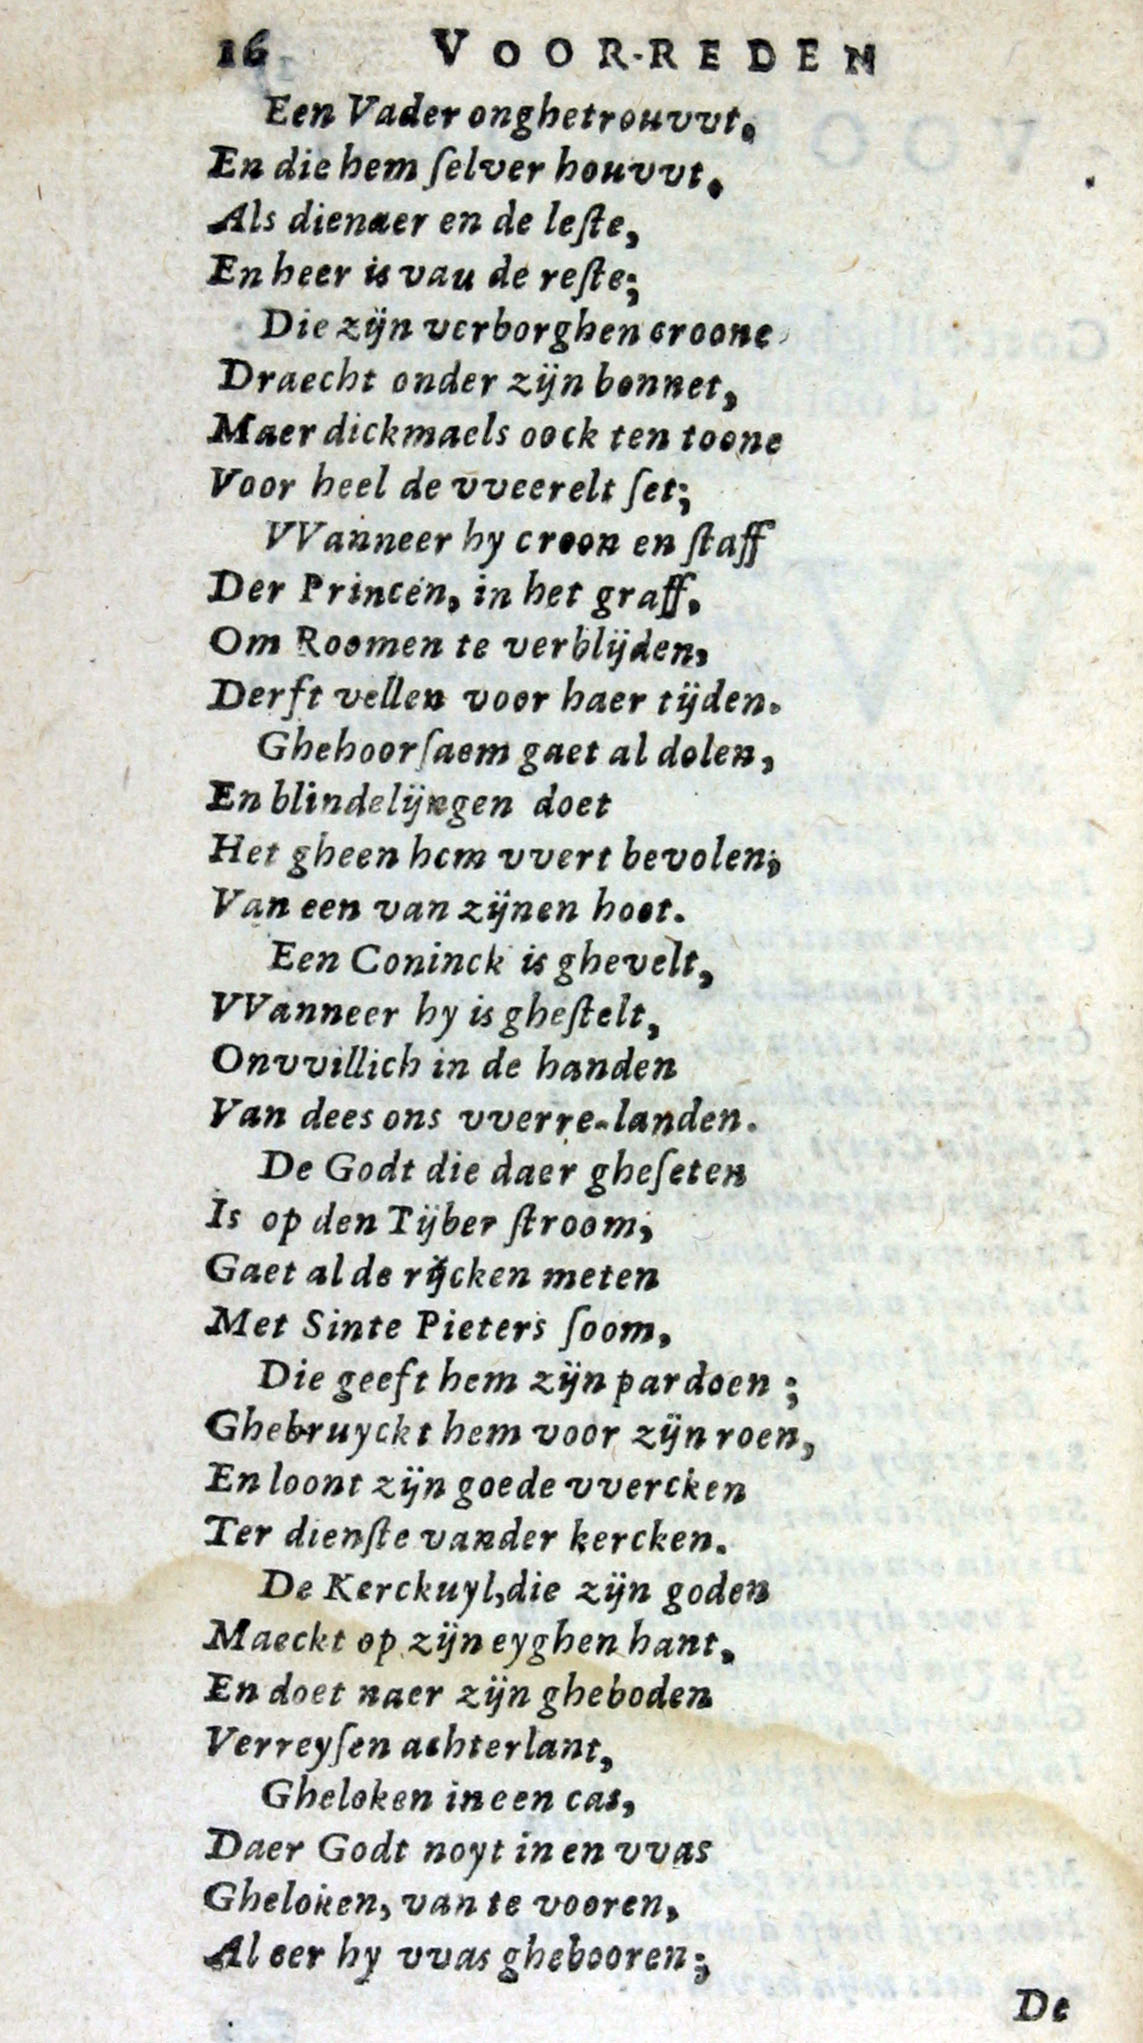 16 VOOR-REDEN
Een Vader onghetrouvvt,
En die hem ſelver houvvt,
Als dienaer en de leſte,
En heer is vau de reſte;
Die zijn verborghen croone
Draecht onder zijn bonnet,
Maer dickmaels oock ten toone
Voor heel de vveerelt ſet;
VVanneer hy croon en ſtaff
Der Princen, in het graff,
Om Roomen te verblijden,
Derft vellen voor haer tijden.
Ghehoorſaem gaet al dolen,
En blindelijngen doet
Het gheen hem vvert bevolen,
Van een van zijnen hoet.
Een Coninck is ghevelt,
VVanneer hy is gheſtelt,
Onvvillich in de handen
Van dees ons vverre-landen.
De Godt die daer gheſeten
Is op den Tijber ſtroom,
Gaet al de rijcken meten
Met Sinte Pieters ſoom,
Die geeft hem zijn pardoen;
Ghebruyckt hem voor zijn roen,
En loont zijn goede vvercken
Ter dienſte vander kercken.
De Kerckuyl, die zijn goden
Maeckt op zijn eyghen hant,
En doet naer zijn gheboden
Verreyſen achterlant,
Gheloken in een cas,
Daer Godt noyt in en vvas
Gheloken, van te vooren,
Al eer hy vvas ghebooren;
De